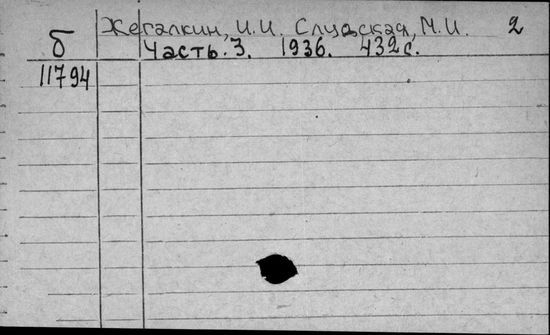 Жегалкин, И.И. Слудская, М.И. 2
б Часть. 3. 1936. 432 с.
11794